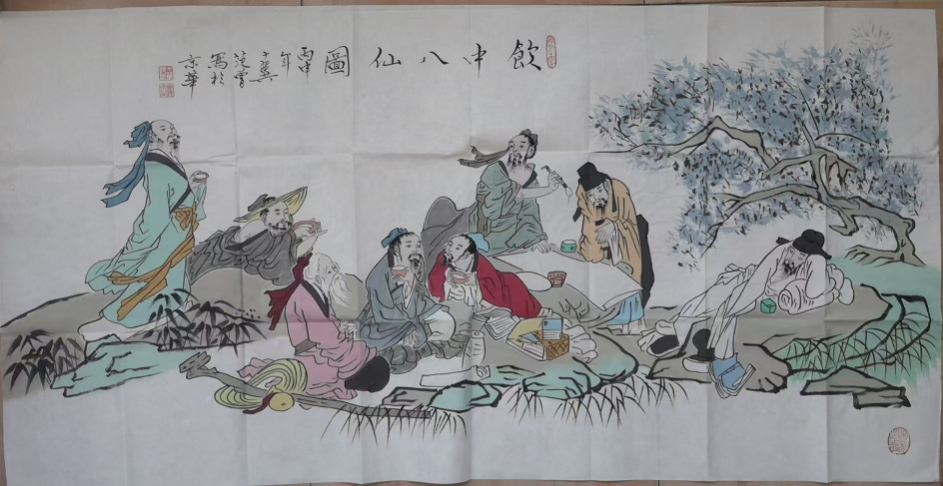 飲中八仙圖
丙申
年
十翼
范曾
寫於
京華